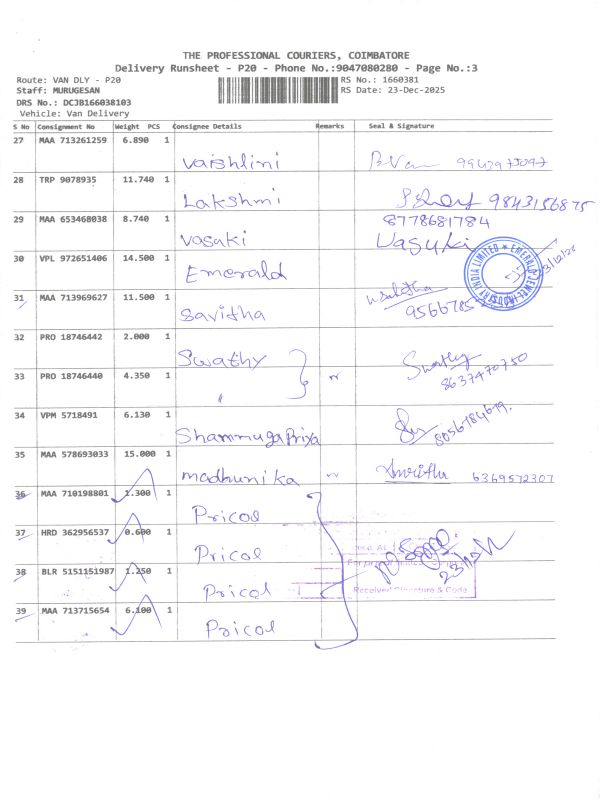 THE PROFESSIONAL COURIERS, COIMBATORE
Delivery Runsheet - P20 - Phone No.:9047080280 - Page No.:3
Route: VAN DLY - P20
Staff: MURUGESAN
DRS No.: DCJB166038103
Vehicle: Van Delivery
RS No.: 1660381
RS Date: 23-Dec-2025
S No Consignment No Weight PCS Consignee Details Remarks Seal & Signature
27 MAA 713261259 6.890 1
Vaishlini 9942975097
28 TRP 9078935 11.740 1
Lakshmi 9843156875
29 MAA 653468038 8.740 1 8778681784
Vasaki Vasuki
30 VPL 972651406 14.500 1
Emerald
31 MAA 713969627 11.500 1
Savitha 9566785
32 PRO 18746442 2.000 1
Swathy Swathy
33 PRO 18746440 4.350 1 8637470750
34 VPM 5718491 6.130 1
ShanmugaPriya 8056784679.
35 MAA 578693033 15.000 1
madhunika Amritha 6369572307
36 MAA 710198801 1.300 1
Pricol
37 HRD 362956537 0.600 1
Pricol
38 BLR 5151151987 1.250 1
Pricol
Received Signature & Code
39 MAA 713715654 6.100 1
Pricol